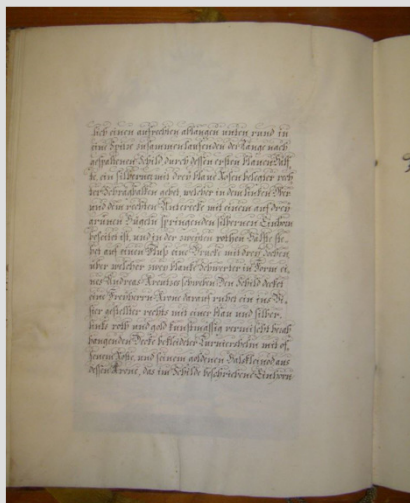 lich einen aufrechten ablangen unten rund in
eine Spitze zusammenlaufenden der Länge nach
gespaltenen Schild durch dessen ersten blauen Hälf-
te, ein silberner mit drey blaue Rosen belegter rech
ter Schragbalken gehet, welcher in dem linken Ober
und dem rechten Untereck mit einem auf drey
grünen Hügeln springenden silbernen Einhorn
beseitet ist, und in der zweyten rothen Hälfte ste-
het auf einen Fluß eine Brucke mit drey Jochen,
über welcher zwey blanke Schwerter in Form ei-
nes Andreas Kreutzes schweben. Den Schild decket
eine Freyherrn Krone darauf ruhet ein ins Vi-
sier gestellter rechts mit einer blau und silber,
links roth und gold kunstmässig vermischt herab
hangenden Decke bekleideter Turniershelm mit of-
fenem Roste, und seinem goldenen Halskleinod aus
dessen Krone, das im Schilde beschriebene Einhorn